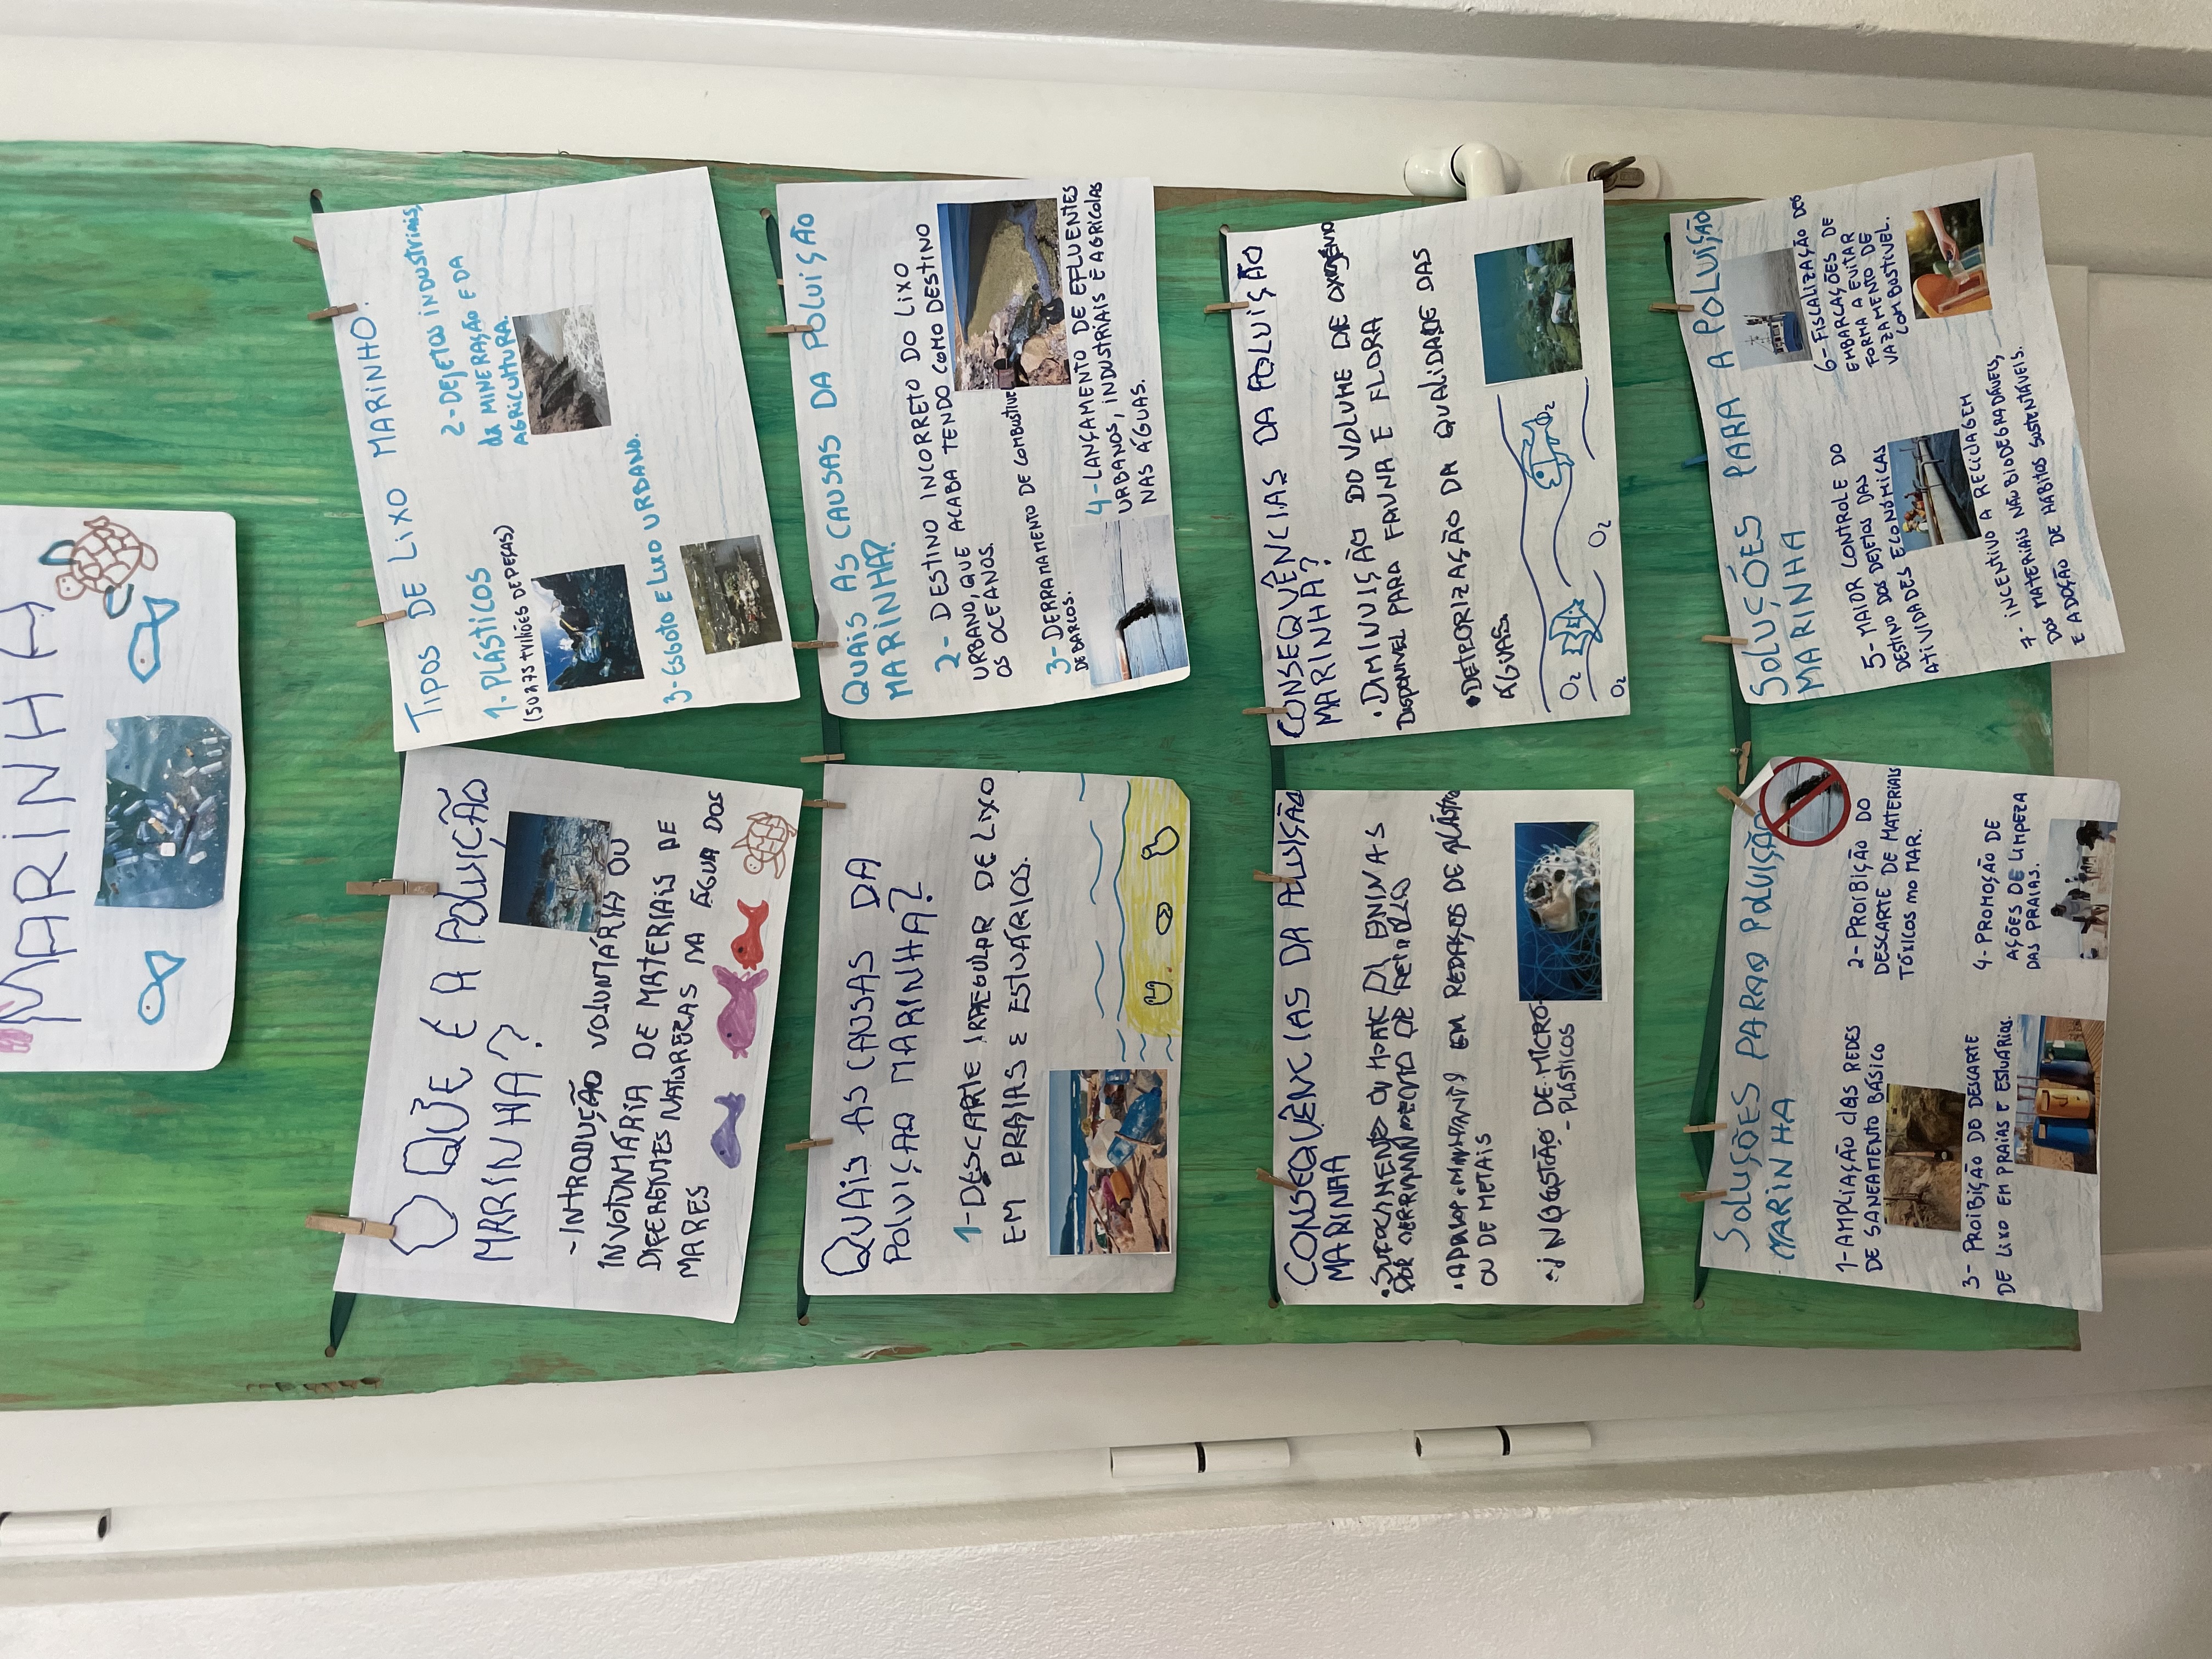 MARINHA
O QUE É A POLUIÇÃO
MARINHA?
- INTRODUÇÃO VOLUNTÁRIA OU
INVOTUNTÁRIA DE MATERIAIS DE
DIFERENTES NATUREZAS NA ÁGUA DOS
MARES
TIPOS DE LIXO MARINHO.
1-PLÁSTICOS
2-DEJETOS INDUSTRIAIS,
da MINERAÇÃO E DA
AGRICULTURA.
3-ESGOTO E LIXO URBANO.
QUAIS AS CAUSAS DA
POLUIÇÃO MARINHA?
1-DESCARTE IRREGULAR DE LIXO
EM PRAIAS E ESTUÁRIOS.
QUAIS AS CAUSAS DA POLUIÇÃO
MARINHA?
2- DESTINO INCORRETO DO LIXO
URBANO, QUE ACABA TENDO COMO DESTINO
OS OCEANOS.
3-DERRAMAMENTO DE COMBUSTIVE
DE BARCOS.
4-LANÇAMENTO DE EFLUENTES
URBANOS, INDUSTRIAIS E AGRÍCOLAS
NAS ÁGUAS.
CONSEQUÊNCIAS DA POLUIÇÃO
MARINA
OU MORTE
POR
EM PEDAÇOS DE PLÁSTICO
OU DE METAIS
INGESTÃO DE MICRO-
- PLÁSTICOS
CONSEQUÊNCIAS DA POLUIÇÃO
MARINHA?
• DIMINUIÇÃO DO VOLUME DE OXIGÉNIO
DISPONIVEL PARA FAUNA E FLORA
• DETEORIZAÇÃO DA QUALIDADE DAS
ÁGUAS.
O2 O2 O2 O2
SOLUÇÕES PARA A POLUIÇÃO
MARINHA
1-AMPLIAÇÃO das REDES
DE SANEAMENTO BÁSICO
2-PROIBIÇÃO DO
DESCARTE DE MATERIAIS
TÓXICOS no MAR.
3- PROIBIÇÃO DO DESCARTE
DE LIXO EM PRAIAS E ESTUÁRIOS.
4-PROMOÇÃO DE
AÇÕES DE LIMPEZA
DAS PRAIAS.
SOLUÇÕES PARA A POLUIÇÃO
MARINHA
5-MAIOR CONTROLE DO
DESTINO DOS DEJETOS DAS
ATIVIDADES ECONÓMICAS
6-FISCALIZAÇÃO DES
EMBARCAÇÕES DE
FORMA A EVITAR
VAZAMENTO DE
COMBUSTIVEL.
7- INCENTIVO A RECICLAGEM
DOS MATERIAIS NÃO BIODEGRADÁVEIS,
E ADOÇÃO DE HÁBITOS SUSTENTÁVEIS.